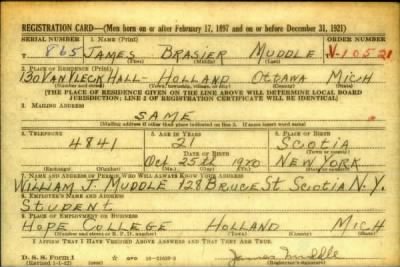 REGISTRATION CARD—(Men born on or after February 17, 1897 and on or before December 31, 1921)
SERIAL NUMBER 1. NAME (Print) ORDER NUMBER
865 JAMES BRASIER MUDDLE
(First) (Middle) (Last)
2. PLACE OF RESIDENCE (Print)
130 VAN VLECK HALL - HOLLAND OTTAWA MICH
(Number and street) (Town, township, village, or city) (County) (State)
[THE PLACE OF RESIDENCE GIVEN ON THE LINE ABOVE WILL DETERMINE LOCAL BOARD
JURISDICTION; LINE 2 OF REGISTRATION CERTIFICATE WILL BE IDENTICAL]
3. MAILING ADDRESS
SAME
[Mailing address if other than place indicated on line 2. If same insert word same]
4. TELEPHONE 5. AGE IN YEARS 6. PLACE OF BIRTH
4841 21 SCOTIA
DATE OF BIRTH
Oct 25th 1920 NEW YORK
7. NAME AND ADDRESS OF PERSON WHO WILL ALWAYS KNOW YOUR ADDRESS
WILLIAM J. MUDDLE 128 BRUCE ST SCOTIA N.Y.
8. EMPLOYER'S NAME AND ADDRESS
STUDENT
9. PLACE OF EMPLOYMENT OR BUSINESS
HOPE COLLEGE HOLLAND MICH
(Number and street or R. F. D. number) (Town) (County) (State)
I AFFIRM THAT I HAVE VERIFIED ABOVE ANSWERS AND THAT THEY ARE TRUE.
D. S. S. Form 1
James Muddle